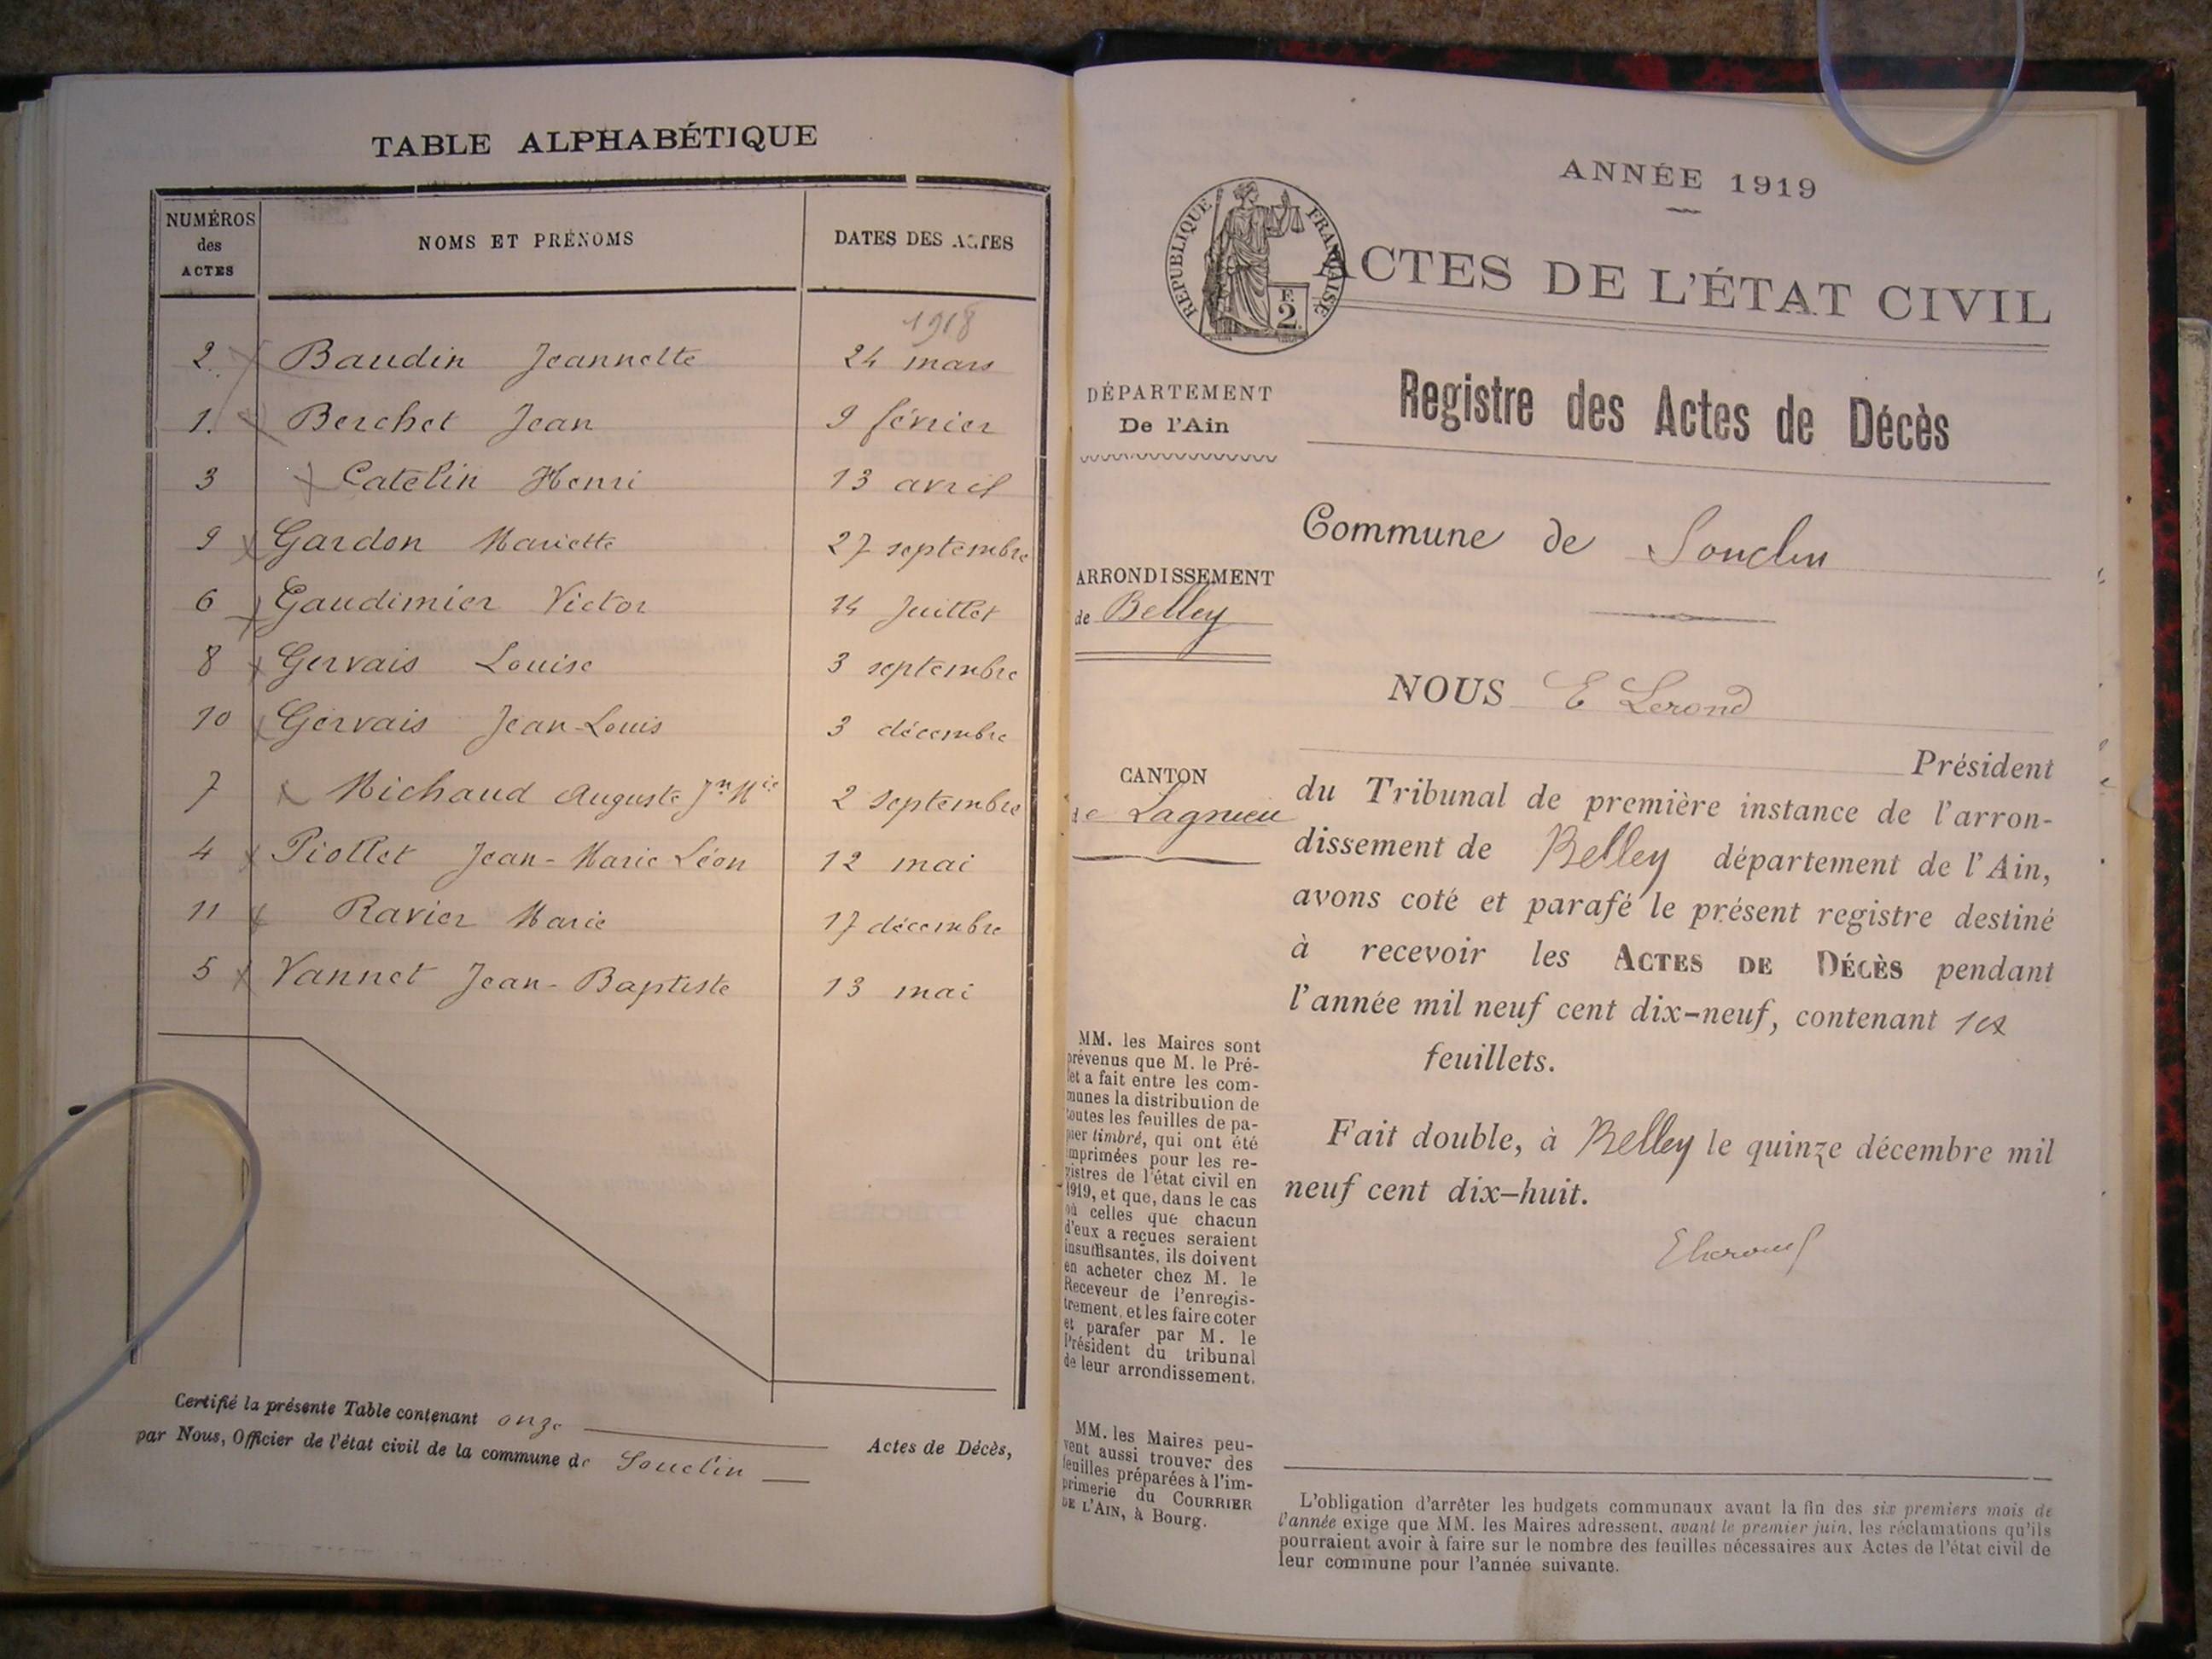 TABLE ALPHABÉTIQUE
NUMÉROS des ACTES
NOMS ET PRÉNOMS
DATES DES ACTES
1918
2. Baudin Jeannette 24 mars
1. Berchet Jean 9 février
3 Catelin Henri 13 avril
9 Gardon Mariette 27 septembre
6 Gaudimier Victor 14 Juillet
8 Gervais Louise 3 septembre
10 Gervais Jean-Louis 3 décembre
7 Michaud Auguste Jn Mie 2 Septembre
4 Piollet Jean-Marie Léon 12 mai
11 Ravier Marie 17 décembre
5 Vannet Jean-Baptiste 13 mai
Certifié la présente Table contenant onze Actes de Décès,
par Nous, Officier de l'état civil de la commune de Souclin
ANNÉE 1919
RÉPUBLIQUE FRANÇAISE
F. 2.
ACTES DE L'ÉTAT CIVIL
Registre des Actes de Décès
DÉPARTEMENT
De l'Ain
Commune de Souclin
ARRONDISSEMENT
de Belley
CANTON
de Lagnieu
NOUS E Lerond
Président
du Tribunal de première instance de l'arron-
dissement de Belley département de l'Ain,
avons coté et parafé le présent registre destiné
à recevoir les ACTES DE DÉCÈS pendant
l'année mil neuf cent dix-neuf, contenant
feuillets.
Fait double, à Belley le quinze décembre mil
neuf cent dix-huit.
ELerond
MM. les Maires sont
prévenus que M. le Pré-
fet a fait entre les com-
munes la distribution de
toutes les feuilles de pa-
pier timbré, qui ont été
imprimées pour les re-
gistres de l'état civil en
1919, et que, dans le cas
où celles que chacun
d'eux a reçues seraient
insuffisantes, ils doivent
en acheter chez M. le
Receveur de l'enregis-
trement, et les faire coter
et parafer par M. le
Président du tribunal
de leur arrondissement.
MM. les Maires peu-
vent aussi trouver des
feuilles préparées à l'im-
primerie du COURRIER
DE L'AIN, à Bourg.
L'obligation d'arrêter les budgets communaux avant la fin des six premiers mois de
l'année exige que MM. les Maires adressent, avant le premier juin, les réclamations qu'ils
pourraient avoir à faire sur le nombre des feuilles nécessaires aux Actes de l'état civil de
leur commune pour l'année suivante.